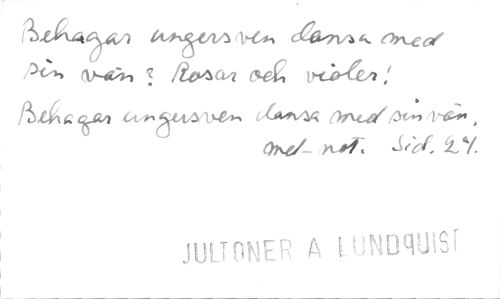 Behagar ungersven dansa med
sin vän? Rosar och violer!
Behagar ungersven dansa med sin vän,
med not. Sid. 24.
JULTONER A LUNDQUIST